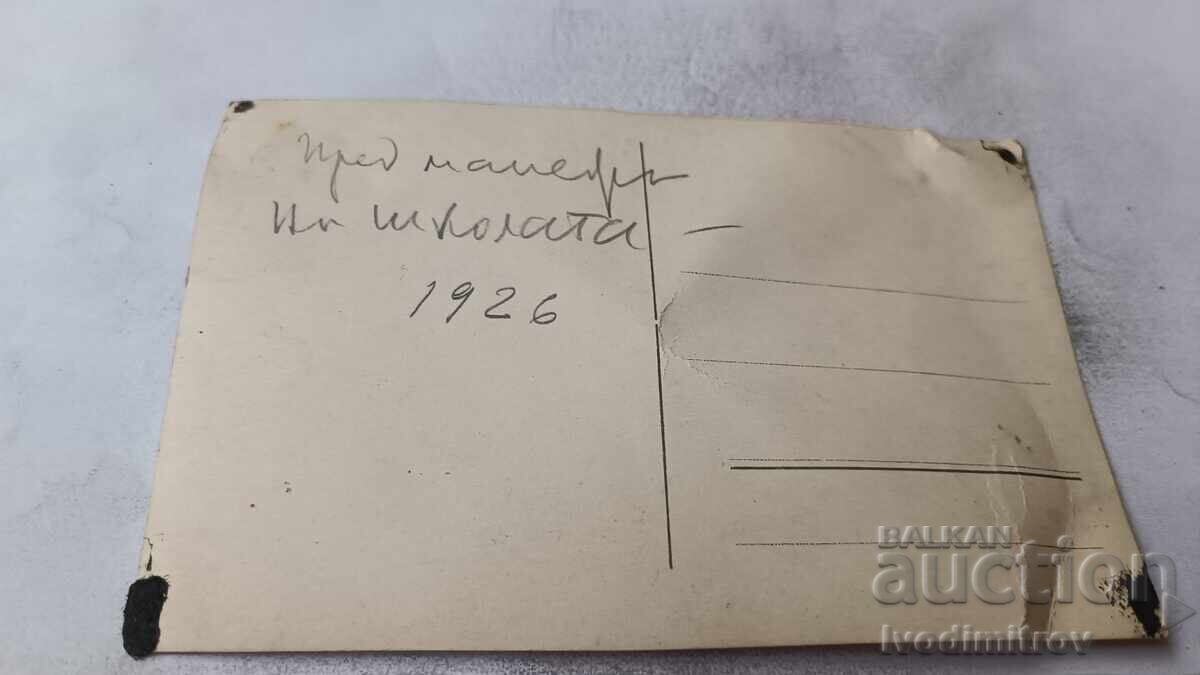 Пред манежа
на школата —
1926
BALKAN
auction
Ivodimitrov